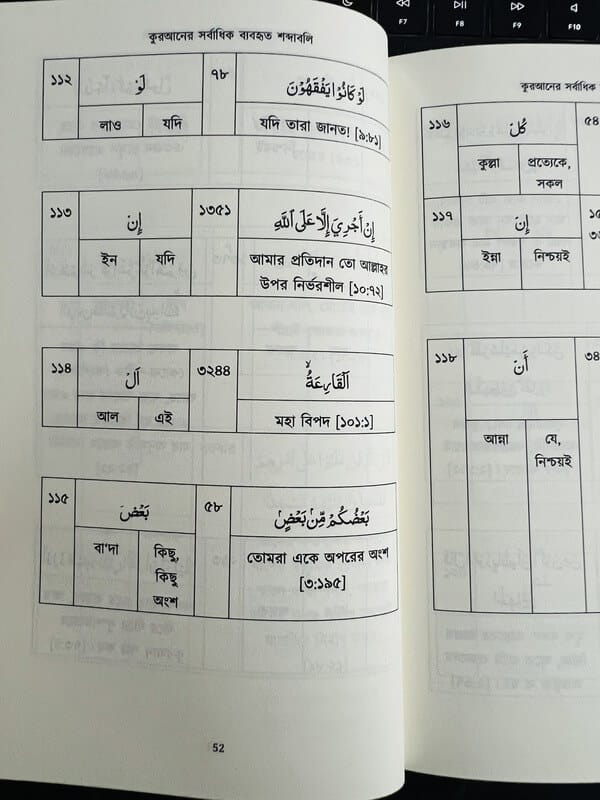 F7
F8
F9
F10
কুরআনের সর্বাধিক ব্যবহৃত শব্দাবলি
১১২
لَوْ
৭৮
لَوْ كَانُوْا يَفْقَهُوْنَ
লাও
যদি
যদি তারা জানত! [৯:৮১]
১১৩
إِنْ
১৩৫১
إِنْ أَجْرِيَ إِلَّا عَلَى اللهِ
ইন
যদি
আমার প্রতিদান তো আল্লাহর
উপর নির্ভরশীল [১০:৭২]
১১৪
اَلْ
৩২৪৪
اَلْقَارِعَةُ
আল
এই
মহা বিপদ [১০১:১]
১১৫
بَعْضَ
৫৮
بَعْضُكُمْ مِّنْ بَعْضٍ
বা'দা
কিছু,
কিছু
অংশ
তোমরা একে অপরের অংশ
[৩:১৯৫]
52
কুরআনের সর্বাধিক
১১৬
كُلَّ
৫৪
কুল্লা
প্রত্যেকে,
সকল
১১৭
إِنَّ
ইন্না
নিশ্চয়ই
১১৮
أَنَّ
৩৪
আন্না
যে,
নিশ্চয়ই